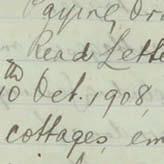 Paying, Or
Read Lette
10th Oct. 1908,
cottages, em